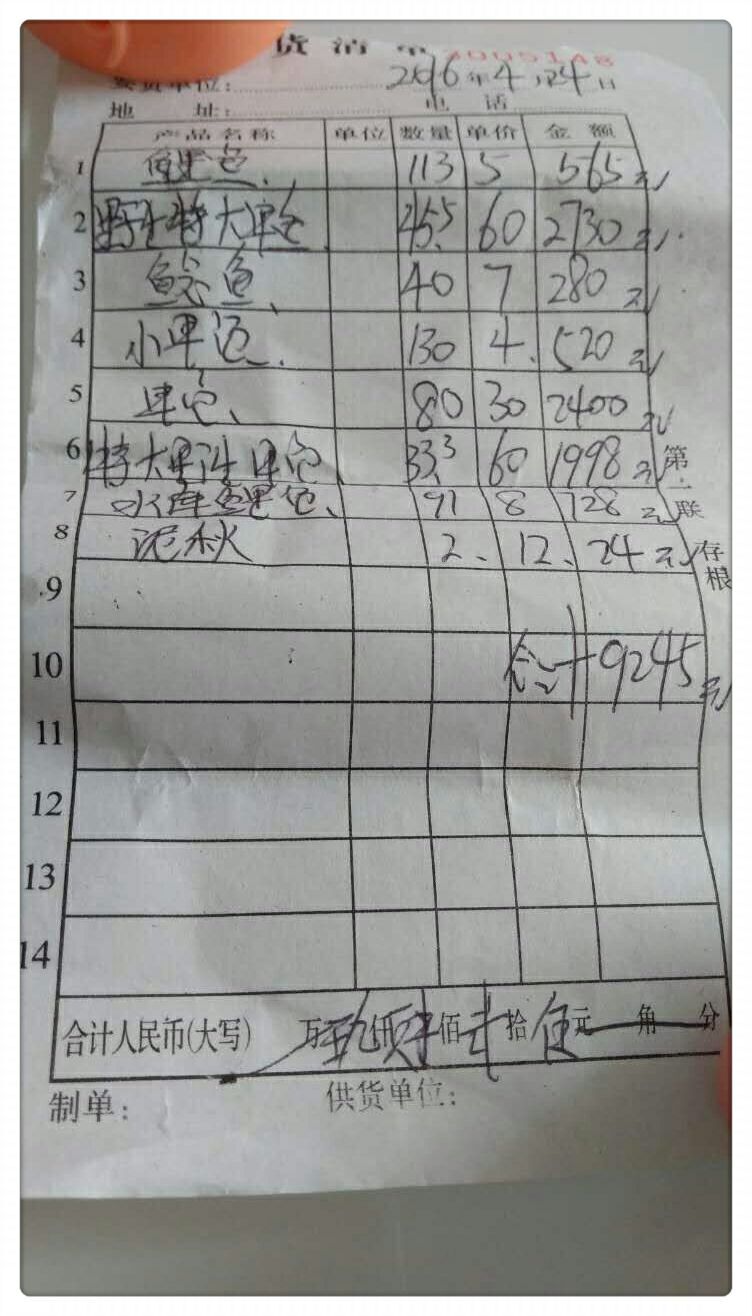 货清单 3005148
发货单位: 2016年4月24日
地 址: 电 话
产品名称 单位 数量 单价 金额
1 鲤鱼 113 5 565元
2 野生特大 45.5 60 2730元
3 鲶鱼 40 7 280元
4 小 130 4 520元
5 80 30 2400元
6 特大 33.3 60 1998元
7 水库鲤鱼 91 8 728元
8 泥秋 2 12 24元
9
10 合计9245元
11
12
13
14
第一联 存根
合计人民币(大写) 万 玖仟 佰 拾 伍元 角 分
制单: 供货单位: